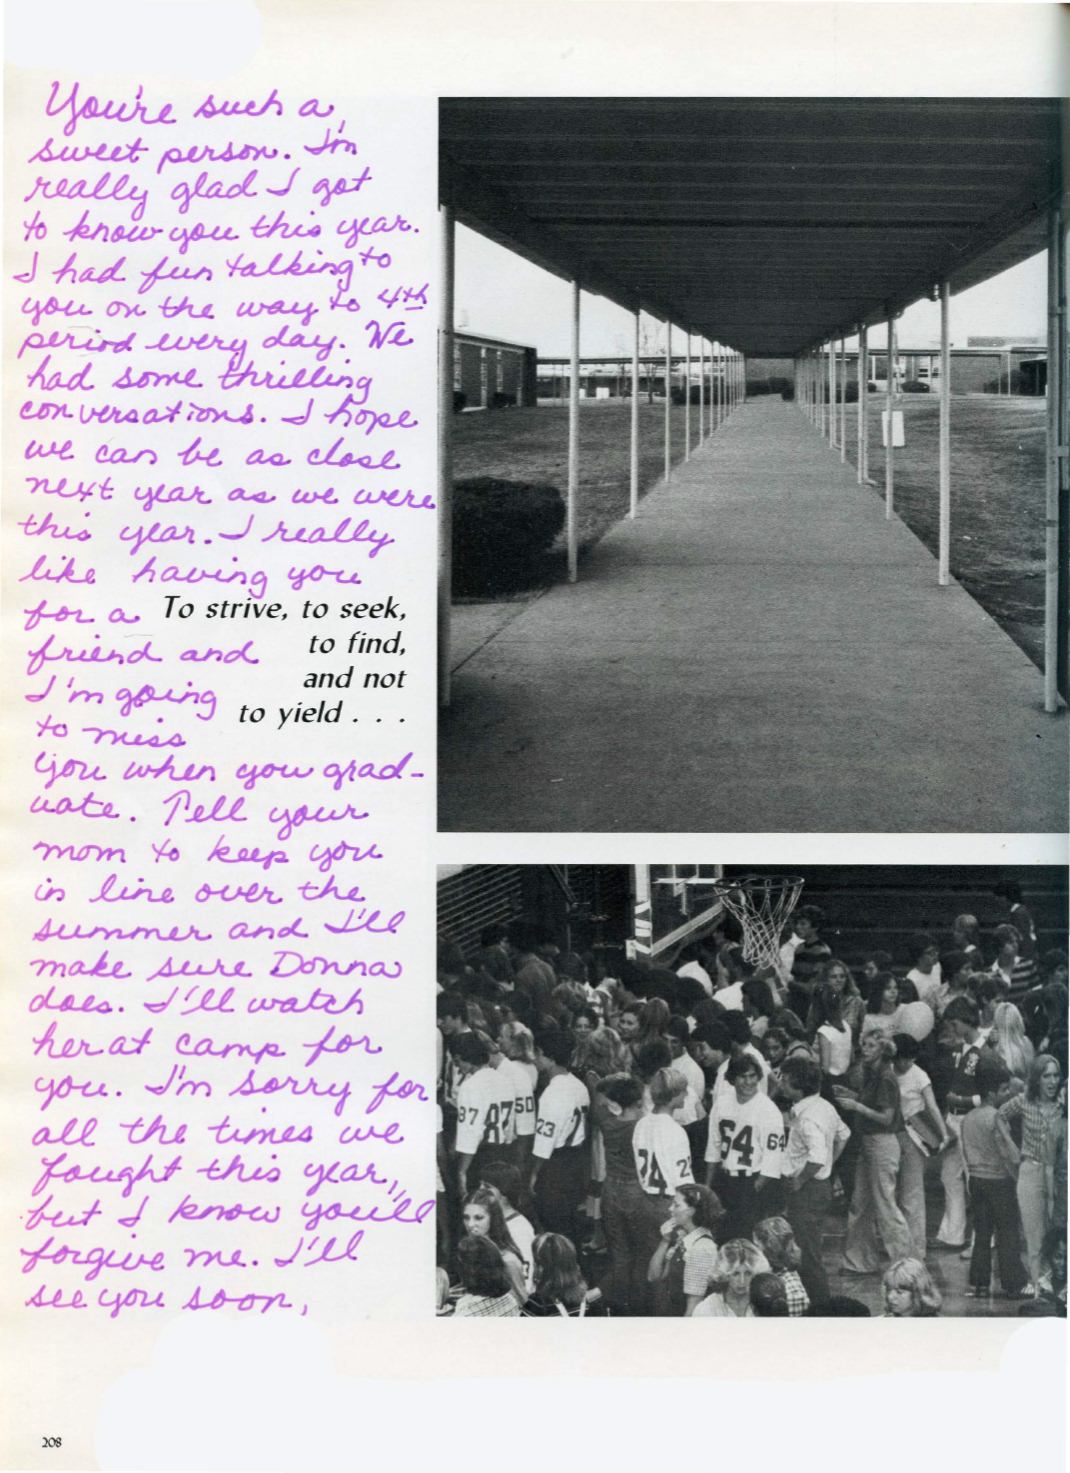 You're such a
sweet person. I'm
really glad I got
to know you this year.
I had fun talking to
you on the way to 4th
period every day. We
had some thrilling
conversations. I hope
we can be as close
next year as we were
this year. I really
like having you
for a
friend and
I'm going
to miss
you when you grad-
uate. Tell your
mom to keep you
in line over the
summer and I'll
make sure Donna
does. I'll watch
her at camp for
you. I'm sorry for
all the times we
fought this year,
but I know you'll
forgive me. I'll
see you soon,
To strive, to seek,
to find,
and not
to yield . . .
87 87 50
23
24 2
64 64
208